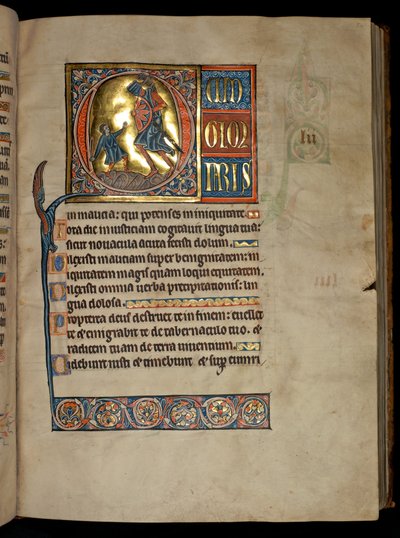 QUID
GLOR
IARIS
in malicia: qui potens es in iniquitate.
Tota die iniusticiam cogitavit lingua tua:
sicut novacula acuta fecisti dolum.
Dilexisti maliciam super benignitatem: in
iquitatem magis quam loqui equitatem.
Dilexisti omnia verba precipitationis: lin
gua dolosa.
Propterea deus destruet te in finem: evellet
te et emigrabit te de tabernaculo tuo. et
radicem tuam de terra viventium.
Videbunt iusti et timebunt et super eum ri